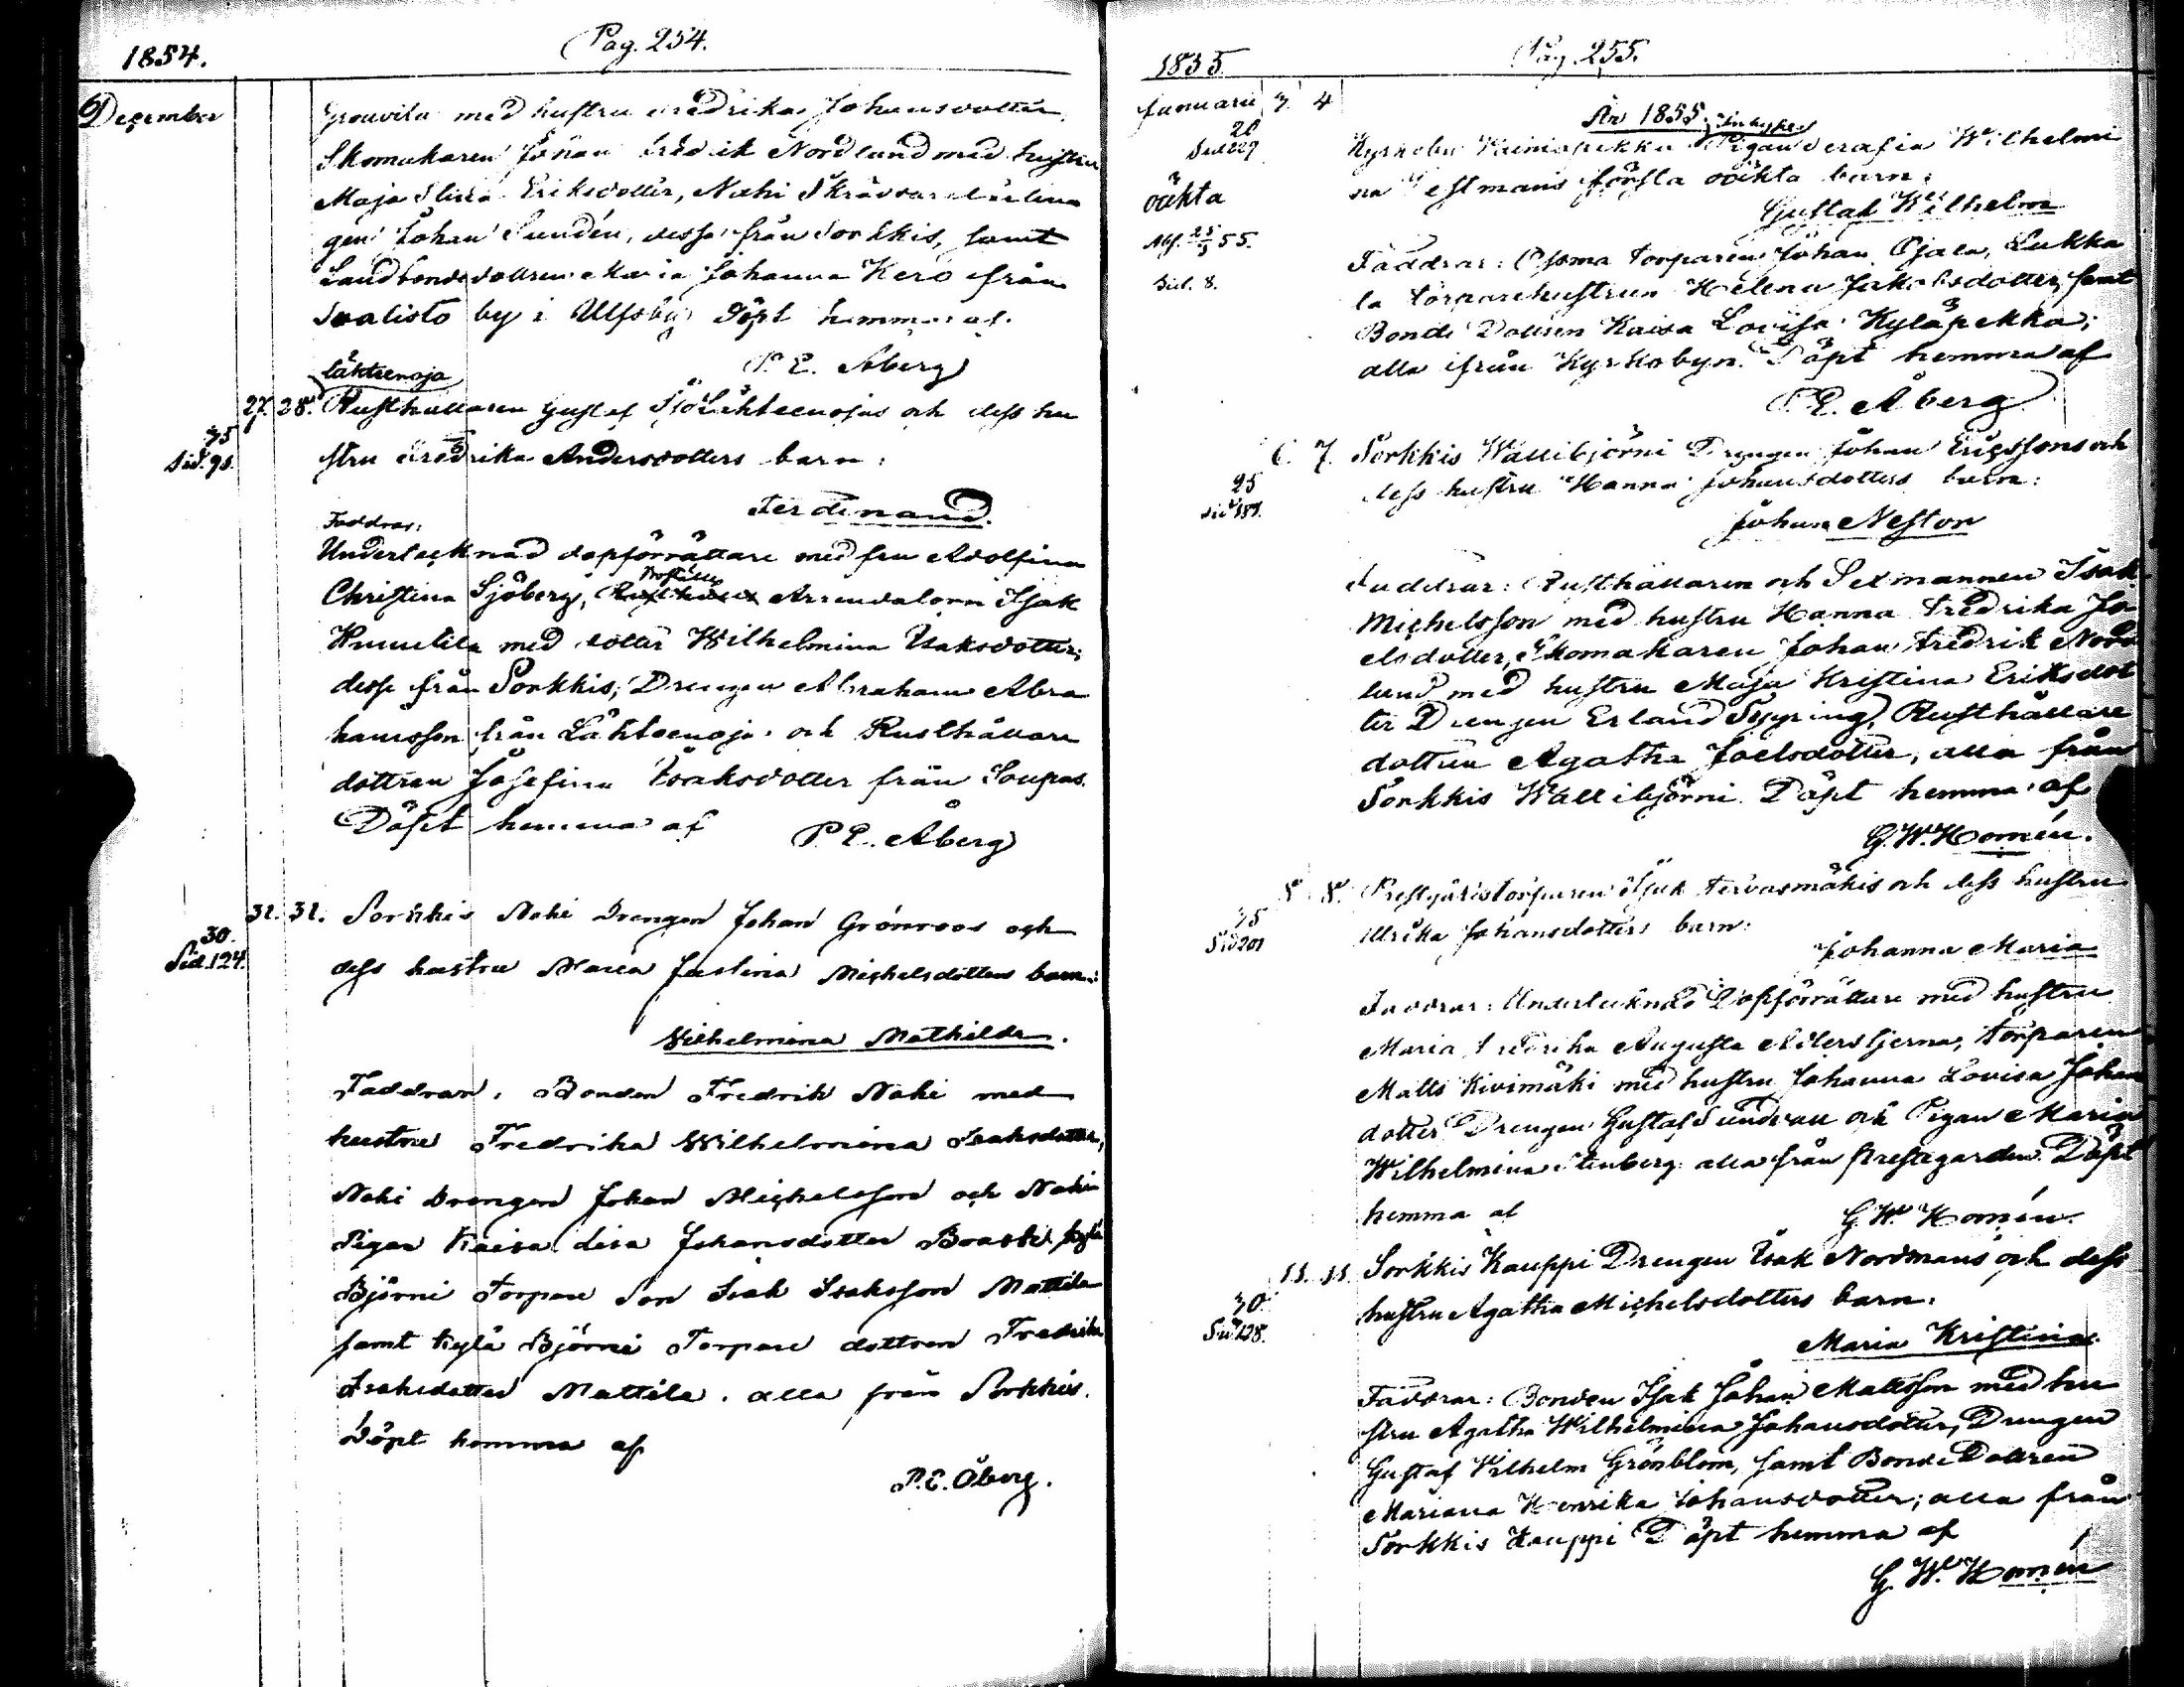 1854.
Pag. 254.
December
med hustru Fredrika Johansdotter,
Skomakaren Johan Fredrik Nordlund med hustru
Maja Stina Eriksdotter, Nohi
gen Johan Sundén, dessa från Sorkkis, samt
Landbondedottren Maria Johanna Kero från
Svalisto by i Ulfsby Döpt hemma af
P. E. Åberg
Lähteenoja
27. 28. Rusthållaren Gustaf Lähteenojas och dess hu
35
Sid. 98.
stru Fredrika Andersdotters barn:
Ferdinand.
Faddrar:
Undertecknad dopförrättare med fru Adolfina
Christina Sjöberg, Arrendatorn Isak
med dotter Wilhelmina Isaksdotter,
desse från Sorkkis, Drengen Abraham Abra
hamsson från Lähteenoja och Rusthållare
dottren Josefina Isaksdotter från Soupas.
Döpt hemma af P. E. Åberg
31. 31. Sorkkis Nohi Drengen Johan Grönroos och
30.
Sid. 124.
dess hustru Maria Justina Michelsdotters barn:
Wilhelmina Mathilda.
Faddrar. Bonden Fredrik Nohi med
hustru Fredrika Wilhelmina Isaksdotter,
Nohi Drengen Johan Michelsson och Nohi
Pigan Kaisa Lisa Johansdotter Kylä
Björni Torpare Son Isak Isaksson Mattila
samt Kylä Björni Torpare dottren Fredrika
Isaksdotter Mattila. alla från Sorkkis.
Döpt hemma af
P. E. Åberg.
1855
Pag. 255.
Januarii 3. 4
År 1855.
Inhyses
20
Sid 229
Kyrkoby Pigan Serafia Wilhelmi
oäkta
na Westmans första oäkta barn:
Gustaf Wilhelm
55.
Sid. 8.
Faddrar: Torparen Johan Ojala, Lukka
la Torparehustrun Helena Jakobsdotter, samt
Bonde Dottren Kaisa Lovisa Kyläpekka;
alla ifrån Kyrkobyn. Döpt hemma af
P. E. Åberg
6. 7. Sorkkis Wällibjörni Drengen Johan Ericssons och
25
Sid 187.
dess hustru Hanna Johansdotters barn:
Johan Nestor
Faddrar: Rusthållaren och Sexmannen Isak
Michelsson med hustru Hanna Fredrika Jo
elsdotter, Skomakaren Johan Fredrik Nord
lund med hustru Maja Kristina Eriksdot
ter Drengen Erland Spyring, Rusthållare
dottren Agatha Joelsdotter, alla från
Sorkkis Wällibjörni. Döpt hemma af
G. W. Homén.
8. 8. Prestgårdstorparen Isak Tervasmäkis och dess hustru
35
Sid 201
Ulrika Johansdotters barn:
Johanna Maria
Faddrar: Undertecknad Dopförrättare med hustru
Maria Fredrika Augusta Adlerstjerna, Torparen
Matts Kivimäki med hustru Johanna Lovisa Johans
dotter Drengen Gustaf Sundvall och Pigan Maria
Wilhelmina Stenberg alla från Prestegården. Döpt
hemma af G. W. Homén.
11. 11. Sorkkis Kauppi Drengen Isak Nordmans och dess
30.
Sid 128.
hustru Agatha Michelsdotters barn:
Maria Kristina
Faddrar: Bonden Isak Johan Mattsson med hu
stru Agatha Wilhelmina Johansdotter, Drengen
Gustaf Wilhelm Grönblom, samt Bonde Dottren
Mariana Henrika Johansdotter; alla från
Sorkkis Kauppi Döpt hemma af
G. W. Homén